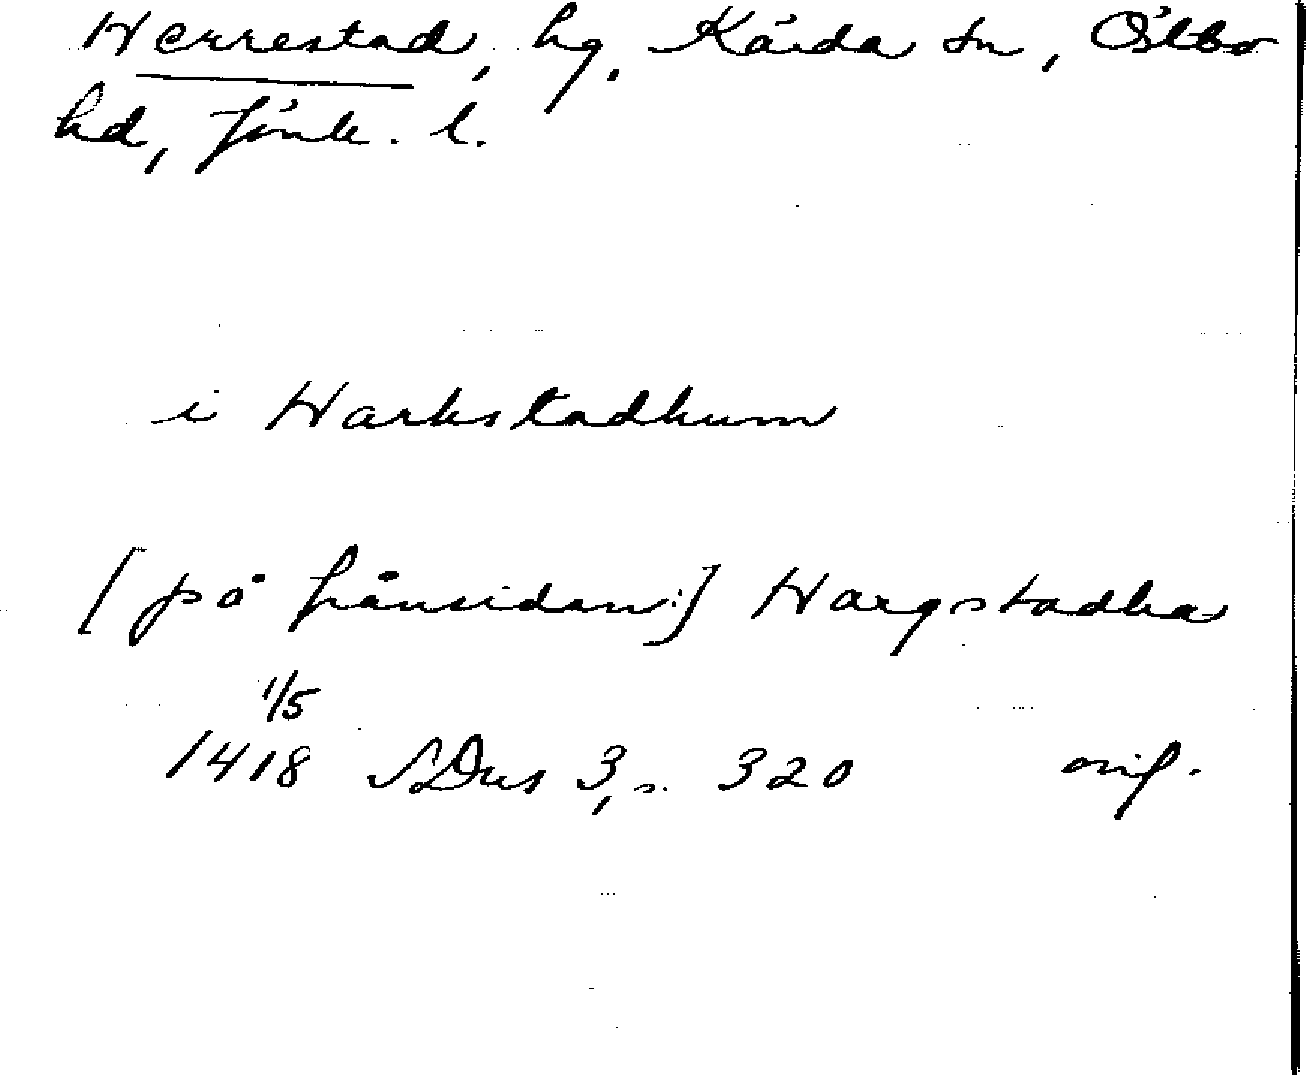 Herrestad, hg, Kärda sn, Östbo
hd, Jönk. l.
i Harkstadhum
[på frånsidan:] Hargstadha
1/5
1418 SDns 3, s. 320 orig.